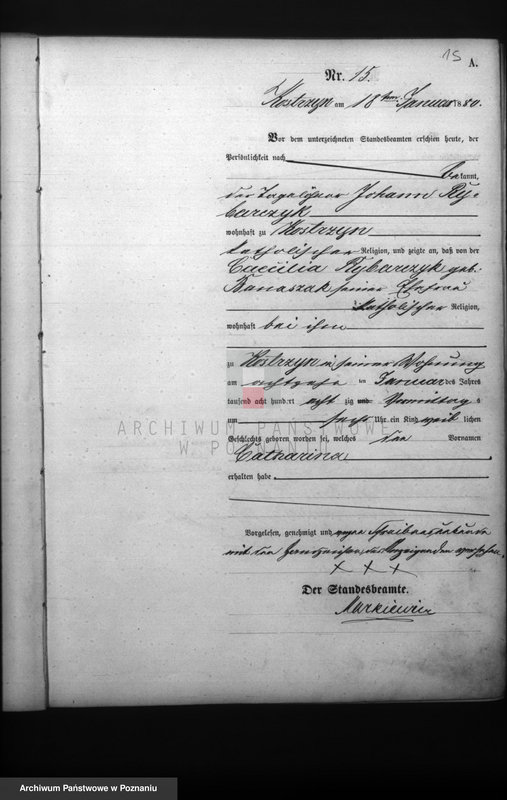 15
A.
Nr. 15.
Kostrzyn am 18ten Januar 1880.
Vor dem unterzeichneten Standesbeamten erschien heute, der
Persönlichkeit nach
bekannt,
der Tagelöhner Johann Ry-
barczyk
wohnhaft zu Kostrzyn
katholischer Religion, und zeigte an, daß von der
Caecilia Rybarczyk geb.
Banaszak seiner Ehefrau
katholischer Religion,
wohnhaft bei ihm
zu Kostrzyn in seiner Wohnung
am achtzehn ten Januar des Jahres
tausend acht hundert acht zig und Vormittag s
um sechs Uhr ein Kind weib lichen
Geschlechts geboren worden sei, welches den Vornamen
Catharina
erhalten habe
Vorgelesen, genehmigt und wegen Schreibensunkunde
mit den Handzeichen des Anzeigenden versehen.
x x x
Der Standesbeamte.
Markiewicz
ARCHIWUM PAŃSTWOWE
W POZNANIU
Archiwum Państwowe w Poznaniu